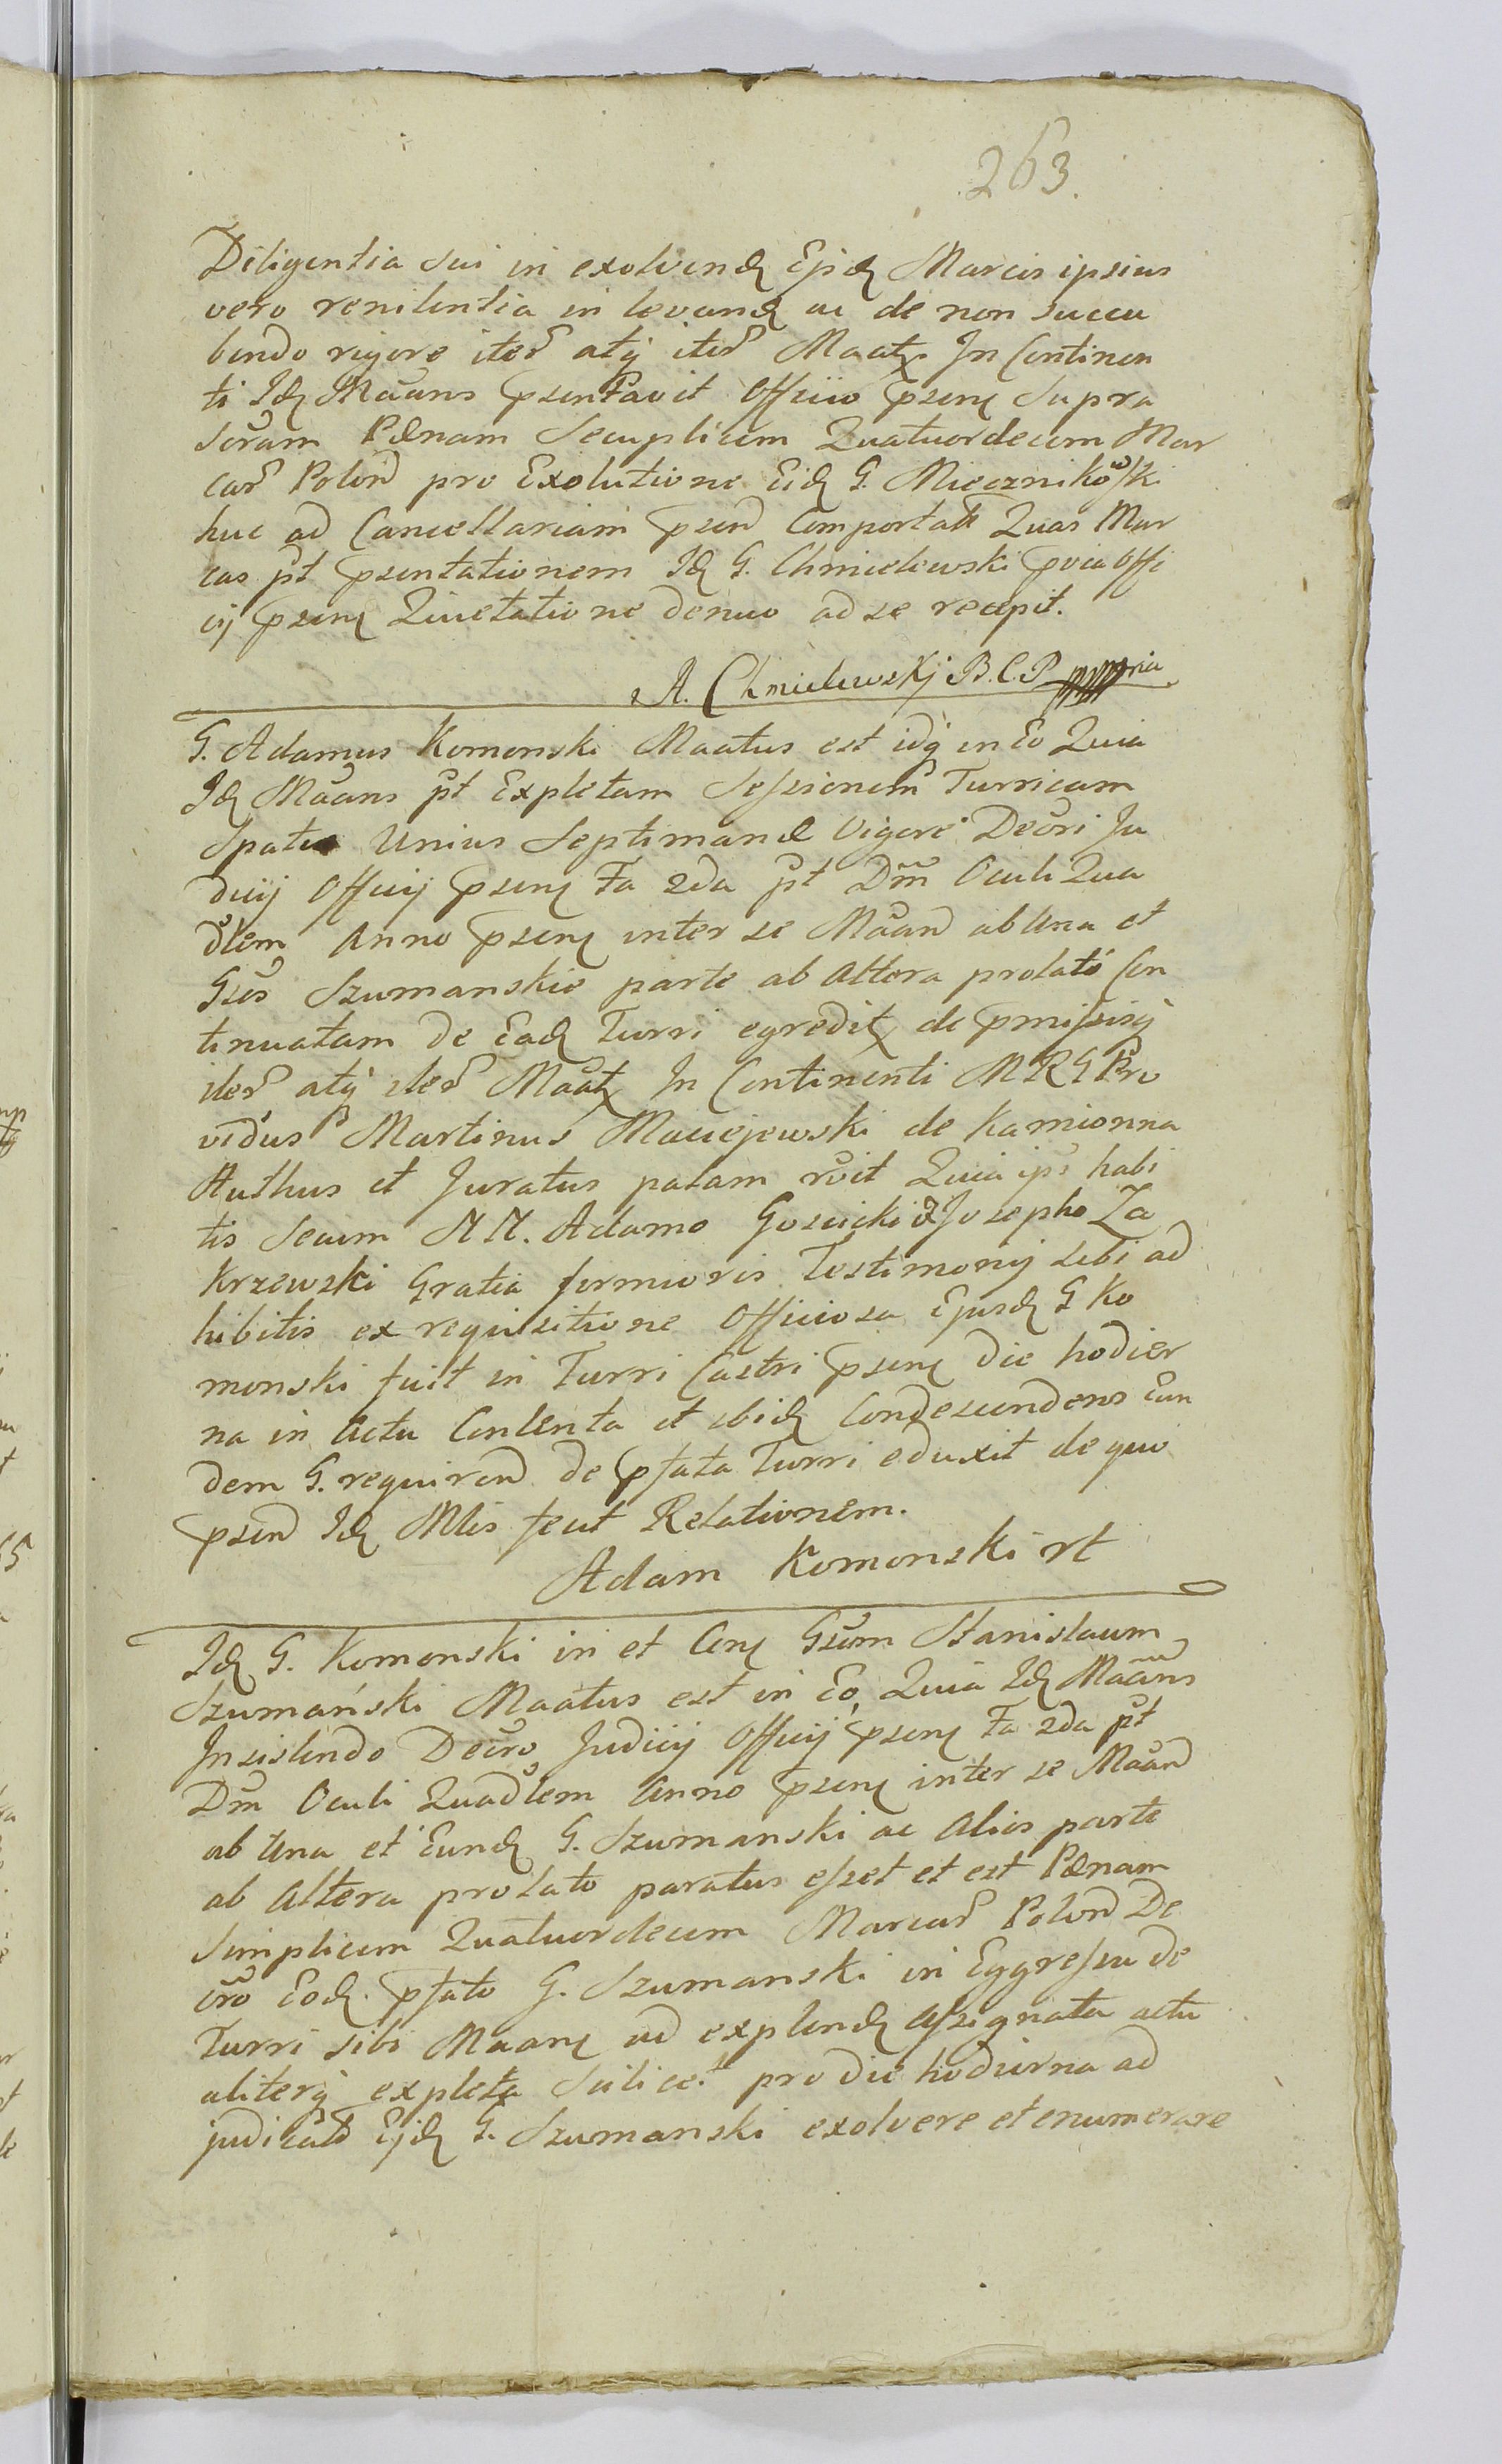 263.
Diligentia sui in exolvend Ejd Marcis ipsius
vero renitentia in levand ac de non succu
bendo rigore iter atq iter Maatr In Continen
ti Id Maans psentavit Officio psens Supra
scram Pænam Secuplicem Quatuordecem Mar
car Polon pro Exolutione Eid G. Miecznikowski
huc ad Cancellariam psen Comportatt Quas Mar
cas pt psentationem Id G. Chmielewski pvia Offi
cij psens Quietatione denuo ad se recepit.
A. Chmielewskj B.C.P mpria
G. Adamus Komonski Maatus est idq in Eo Quia
Id Maans pt Expletam Sessionem Turricam
Spatio Unius Septimanæ Vigore Decri Ju
dicij Officij psens Fa 2da pt Dm Oculi Qua
dlem Anno psens inter se Maan ab Una et
Gsos Szumanskie parte ab Altera prolato Con
tinuatam de Ead Turri egreditr de pmissisq
iter atq iter Maatr In Continenti MRG Pro
vidus Martinus Maciejewski de Kamionna
Authus et Juratus palam rvit Quia ips habi
tis secum NN. Adamo Goscicki & Josepho Za
krzewski Gratia formioris Testimonij sibi ad
hibitis ex requisitione Officiosa Ejusd G Ko
monski fuit in Turri Castri psens die hodier
na in Actu Contenta et ibid Condescendens Eun
dem G. requiren de pfata Turri eduxit de quo
psen Id Mlis fecit Relationem.
Adam Komonski rt
Id G. Komonski in et Cons Gsum Stanislaum
Szumański Maatus est in Eo, Quia Id Maans
Insistendo Decro Judicij Officij psens Fa 2da pt
Dm Oculi Quadlem Anno psens inter se Maan
ab Una et Eund G. Szumanski ac Alios parte
ab Altera prolato paratus esset et est Pænam
Simplicem Quatuordecem Marcar Polon De
cro Eod. pfato G. Szumanski in Eggressu de
Turri sibi Maans ad explend Assignata actu
aliterq expleta Scilicet pro die hodierna ad
judicato Ejd G. Szumanski exolvere et enumerare